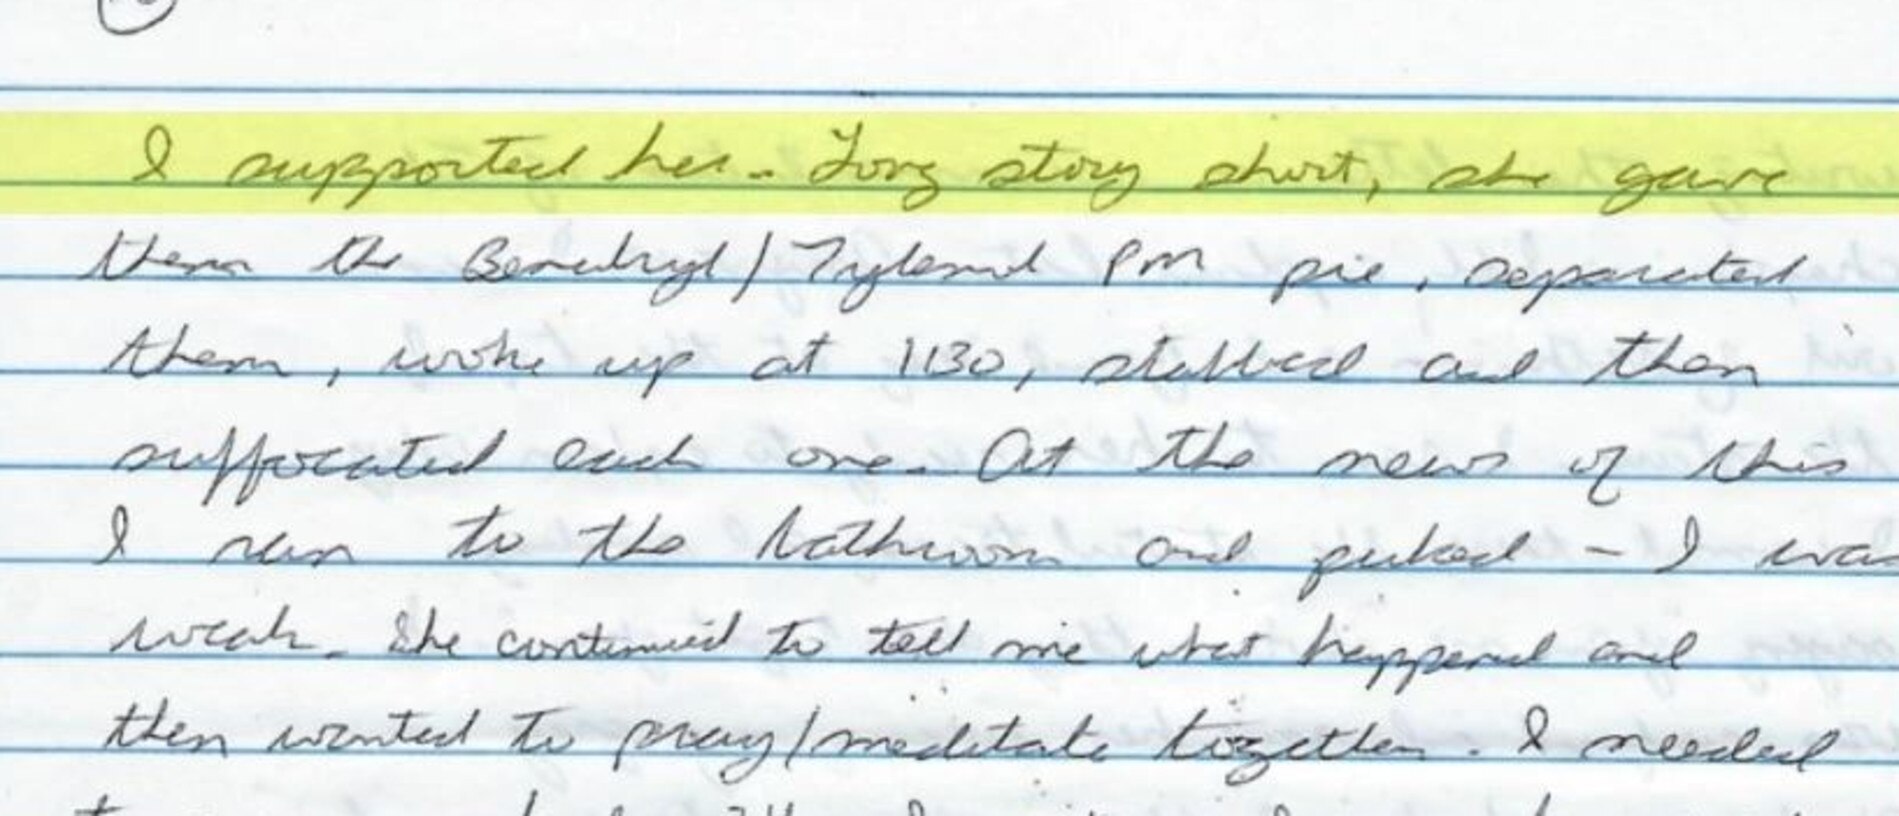 I supported her. Long story short, she gave
them the Benedryl/Tylenol PM pie, separated
them, woke up at 1130, stabbed and then
suffocated each one. At the news of this
I ran to the bathroom and puked - I was
weak. She continued to tell me what happened and
then wanted to pray/meditate together. I needed